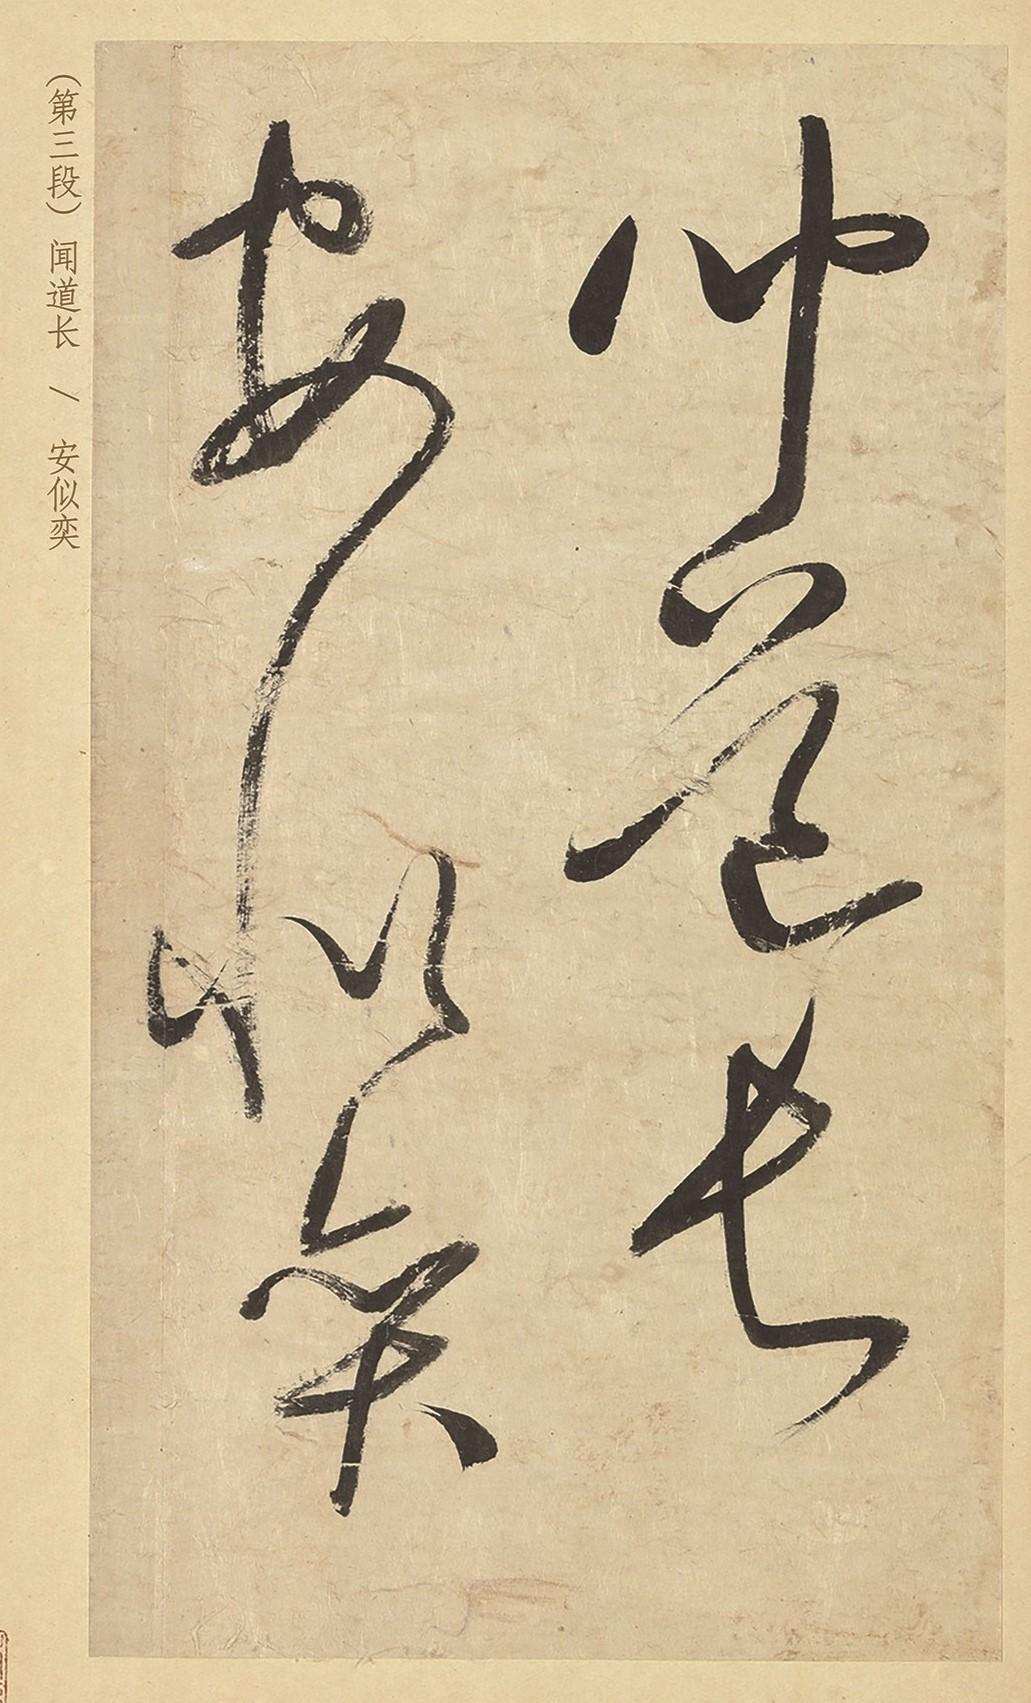 聞道長
安似奕
（第三段） 闻道长 / 安似奕